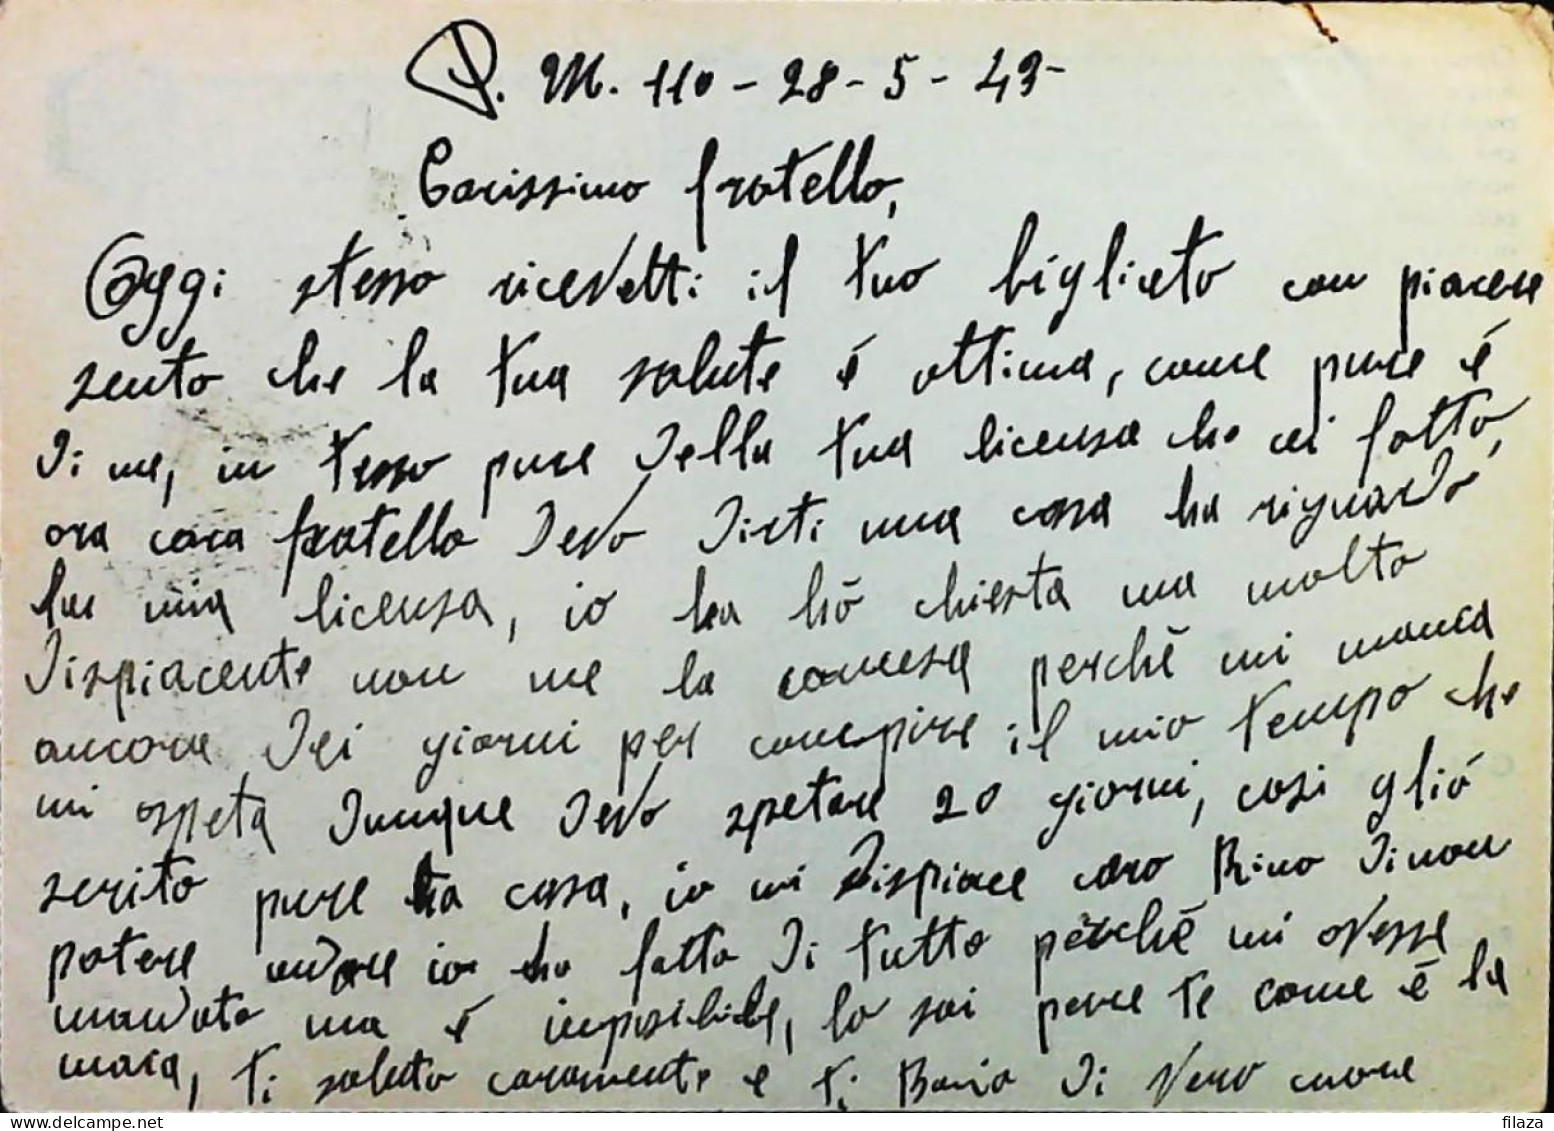 P. M. 110 - 28 - 5 - 43 -
Carissimo fratello,
Oggi stesso ricevetti il tuo biglieto con piacere
sento che la tua salute é ottima, come pure é
di me, in teso pure della tua licensa che ai fatto,
ora cara fratello devo dirti una cosa ha riguardo
la mia licensa, io la hó chiesta ma molto
dispiacente non me la concesa perché mi manca
ancora dei giorni per compire il mio tempo che
mi aspeta dunque devo spetare 20 giorni, cosi glió
scrito pure ha casa, io mi dispiace caro Rino di non
potere andare io ho fatto di tutto perché mi avesse
mandato ma é imposibile, lo sai pure te come é la
maca, ti saluto caramente e ti Bacio di vero cuore
filaza
delcampe.net